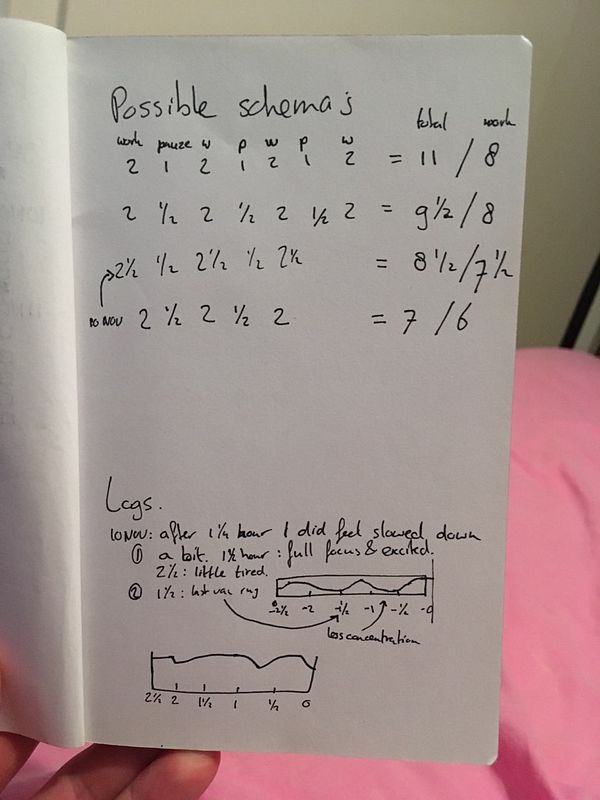 Possible schema's
total work
work pauze w p w p w
2 1 2 1 2 1 2 = 11 / 8
2 1/2 2 1/2 2 1/2 2 = 9 1/2 / 8
2 1/2 1/2 2 1/2 1/2 2 1/2 = 8 1/2 / 7 1/2
10 NOV 2 1/2 2 1/2 2 = 7 / 6
Logs.
10 NOV: after 1 1/4 hour I did feel slowed down
① a bit. 1 1/2 hour: full focus & excited.
2 1/2: little tired.
② 1 1/2: last
-2 1/2 -2 -1 1/2 -1 -1/2 -0
less concentration
2 1/2 2 1 1/2 1 1/2 0